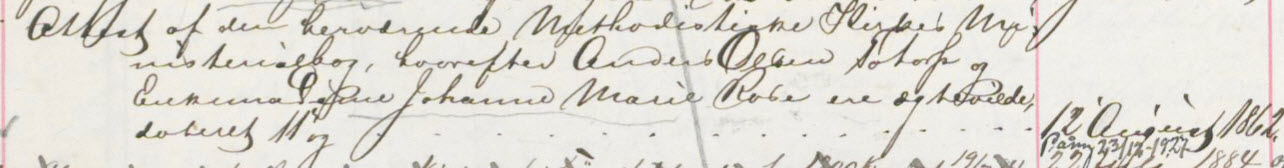 Attest af den herværende Methodistiske Kirkes Mi-
nisterialbog, hvorefter Anders Olsen Totorp og
Enkemadame Johanne Marie Robe ere ægteviede,
dateret 11 og . . . . . . . . . . . . 12 August 1862
23/12-1927
1884